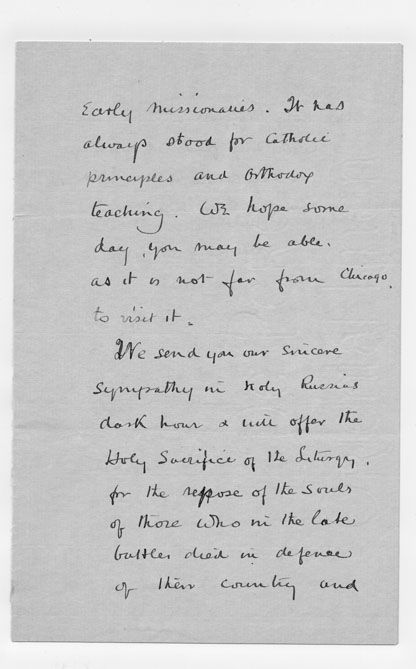 Early Missionaries. It has
always stood for Catholic
principles and Orthodox
teaching. We hope some
day, you may be able.
as it is not far from Chicago.
to visit it.
We send you our sincere
sympathy in Holy Russias
dark hour & will offer the
Holy Sacrifice of the Liturgy.
for the reppose of the Souls
of those who in the late
battles died in defence
of their country and